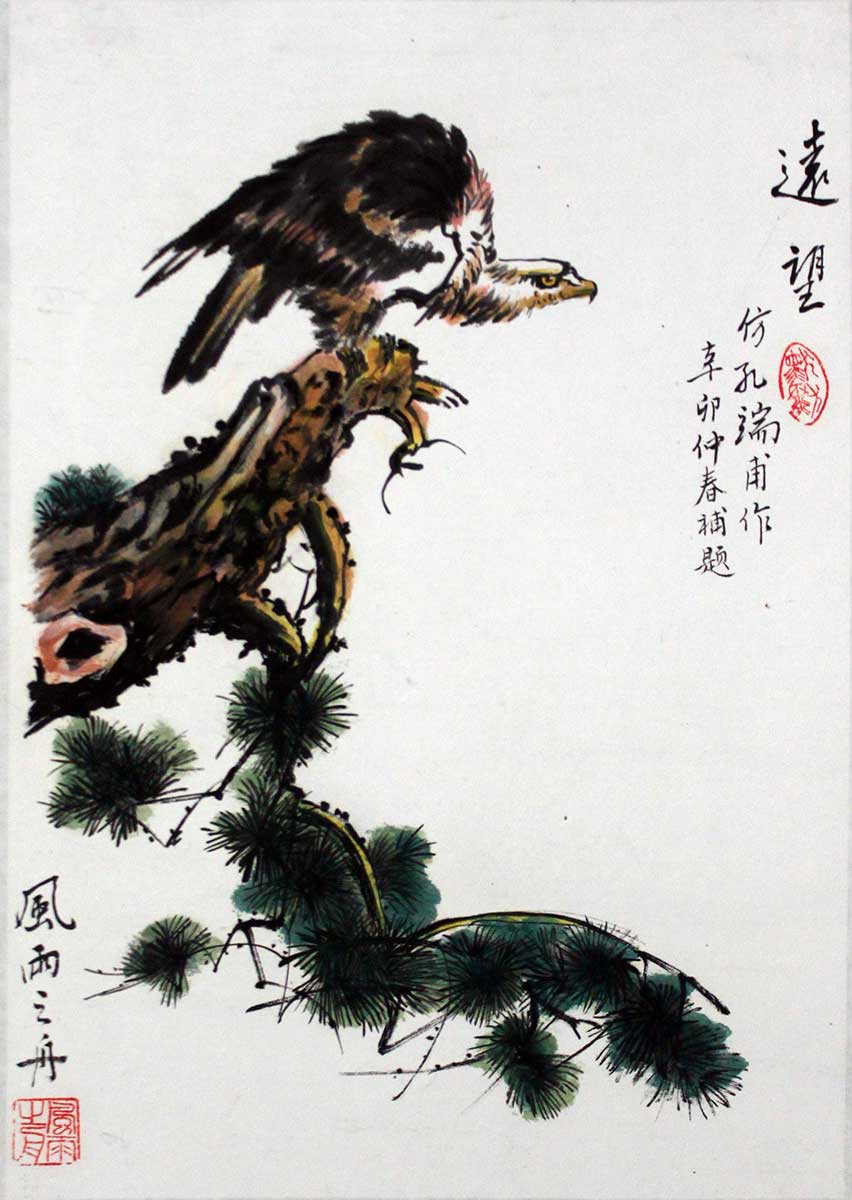 遠望
仿孔端甫作
辛卯仲春補題
風雨之舟